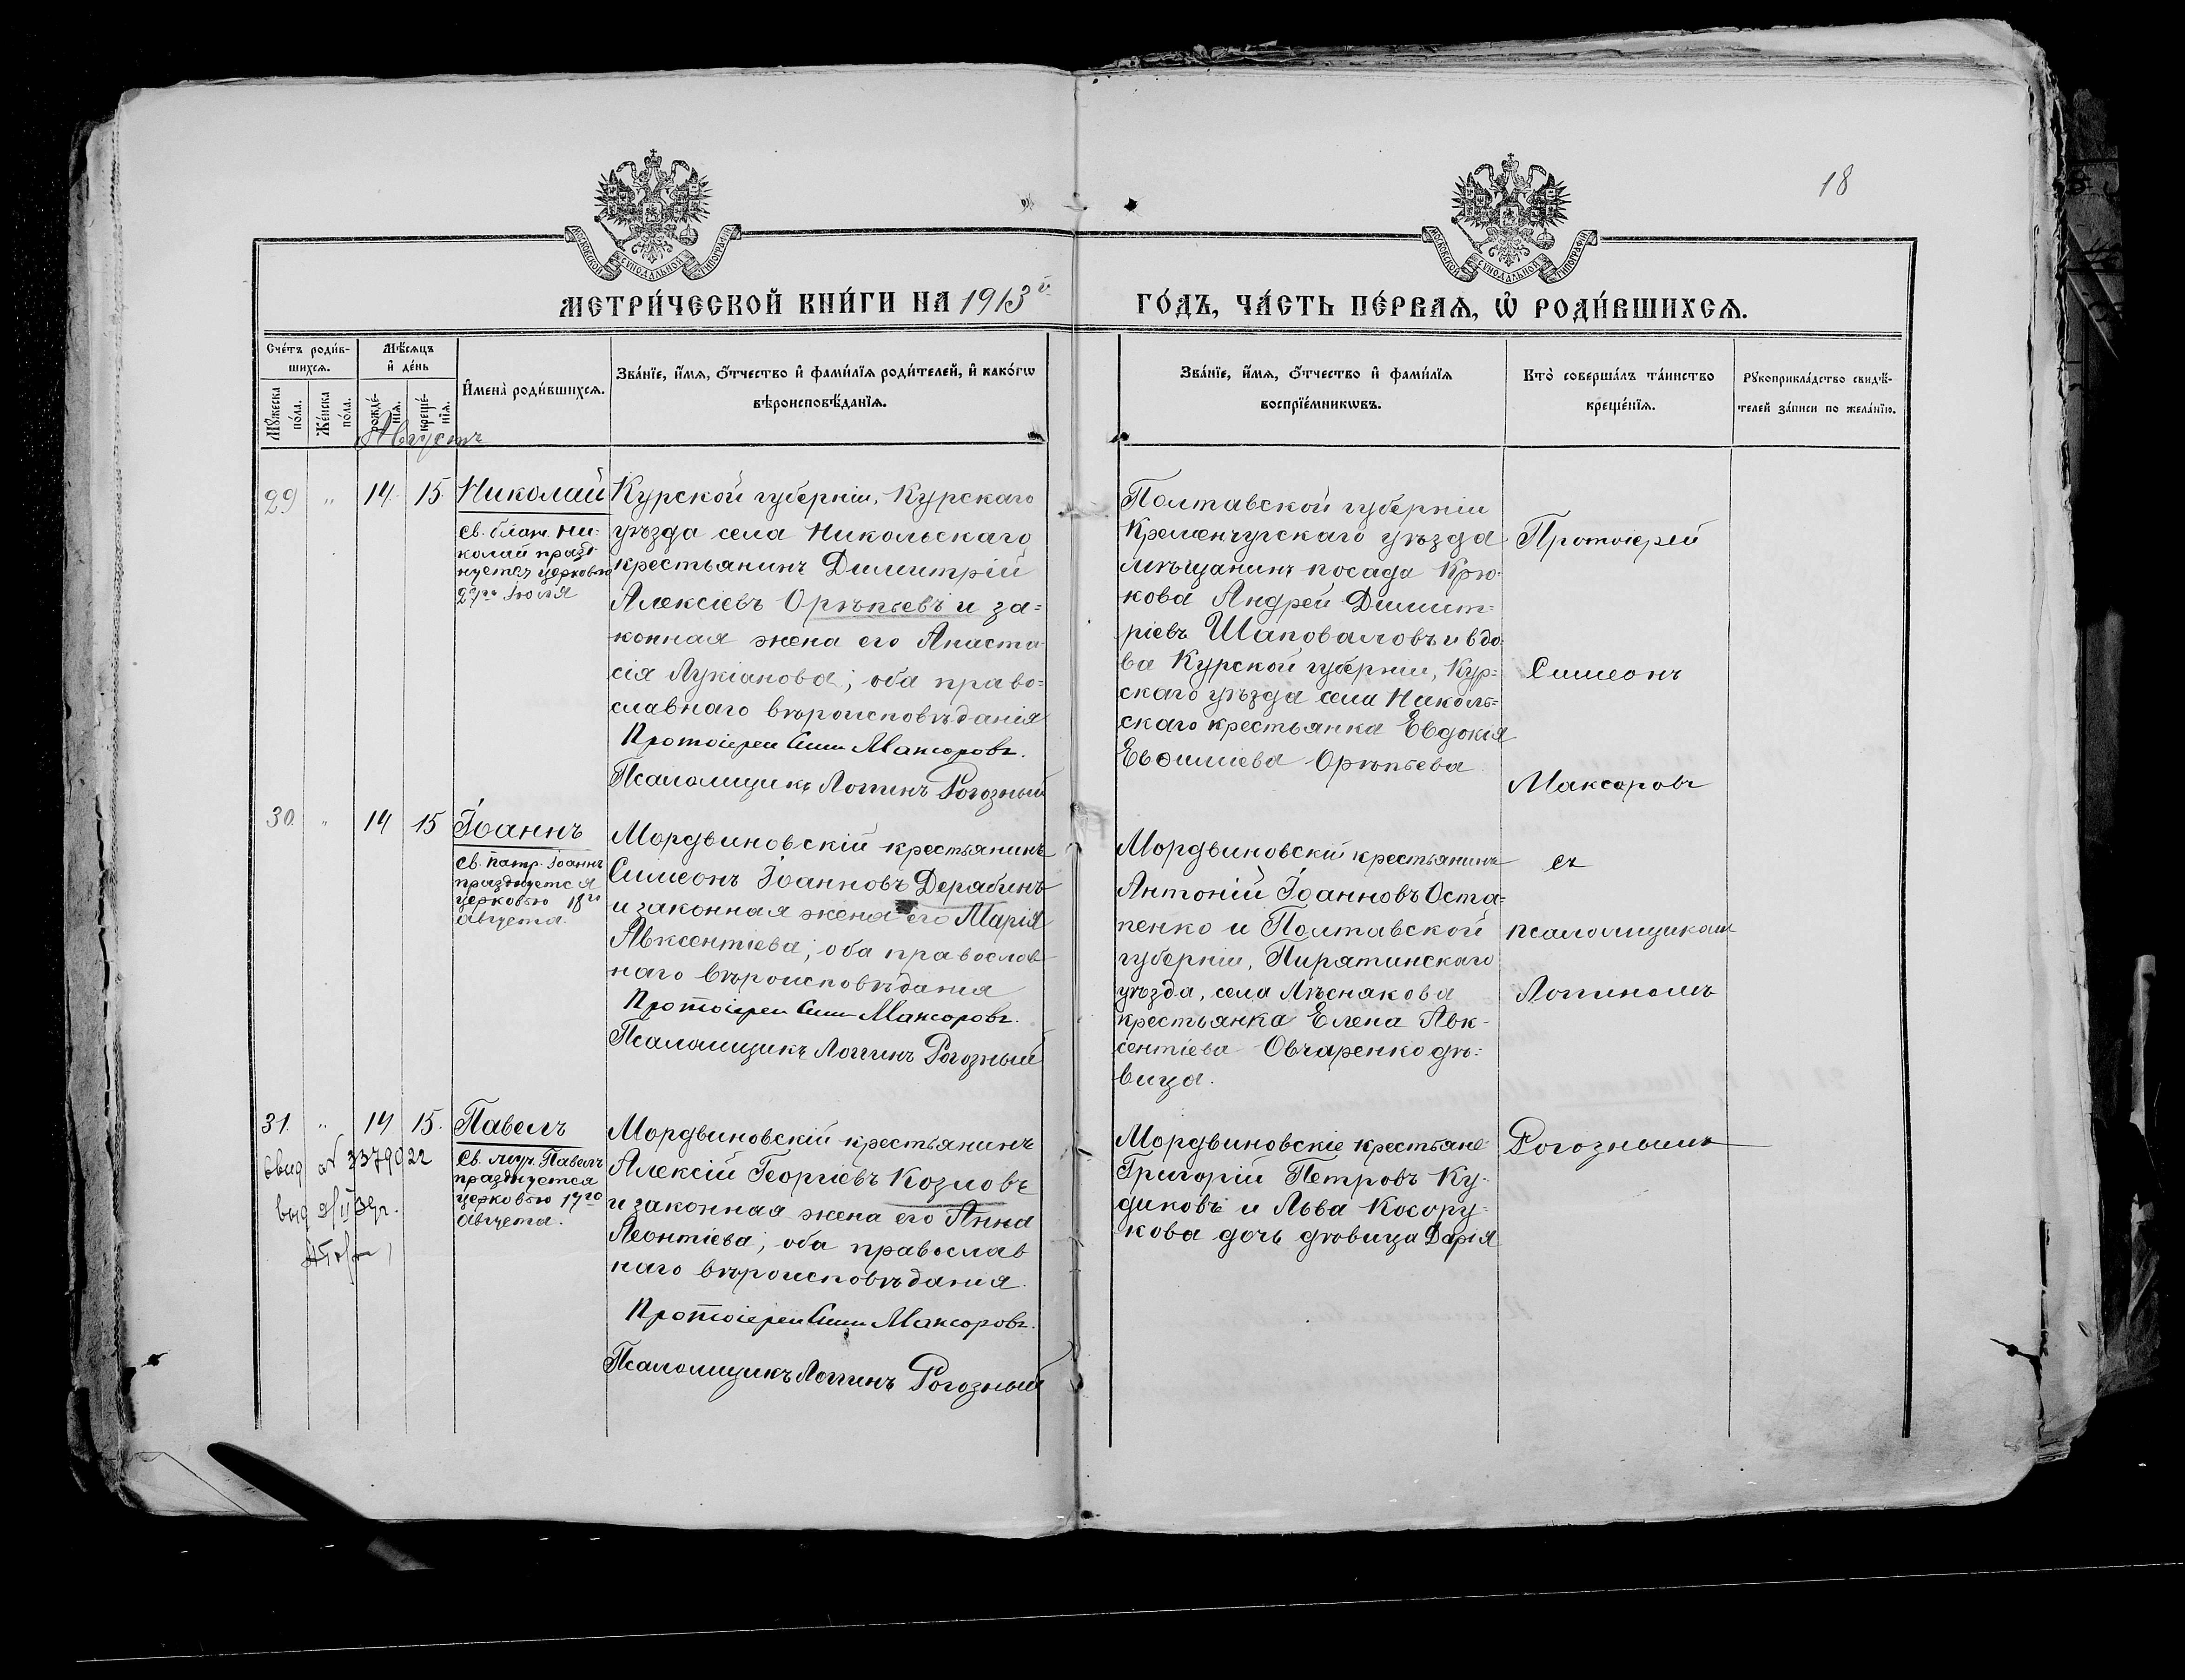 18
МОСКОВСКОЙ СѴНОДАЛЬНОЙ ТИПОГРАФІИ
МОСКОВСКОЙ СѴНОДАЛЬНОЙ ТИПОГРАФІИ
МЕТРИ́ЧЕСКОЙ КНИ́ГИ НА 1913й
ГО́ДЪ, ЧА́СТЬ ПЕ́РВАѦ, Ѡ҆ РОДИ́ВШИХСѦ.
Сче́тъ роди́в-
шихсѧ.
Мꙋ́жеска
по́ла.
Же́нска
по́ла.
Мѣ́сѧцъ
и҆ де́нь
рожде́-
нїѧ.
креще́-
нїѧ.
И҆мена̀ роди́вшихсѧ.
Зва́нїе, и҆́мѧ, ѻ҆́тчество и҆ фами́лїѧ роди́телей, и҆ како́гѡ
вѣроисповѣ́данїѧ.
Зва́нїе, и҆́мѧ, ѻ҆́тчество и҆ фами́лїѧ
воспрїе́мникѡвъ.
Кто̀ соверша́лъ та́инство
креще́нїѧ.
Рꙋкоприкла́дство свидѣ́-
телей за́писи по жела́нїю.
Августъ
29 " 14 15 Николай
Св. блаж. Ни-
колай празд-
нуется церковью
27го Іюля
Курской губерніи, Курскаго
уѣзда села Никольскаго
крестьянинъ Димитрій
Алексіевъ Орѣпьевъ и за=
конная жена его Анаста-
сія Лукіанова; оба право=
славнаго вѣроисповѣданія
Протоіерей Сим Максоровъ.
Псаломщикъ Логгинъ Рогозный
Полтавской губерніи
Кременчугскаго уѣзда
мѣщанинъ посада Крю-
кова Андрей Димит=
ріевъ Шаповаловъ и вдо-
ва Курской губерніи, Кур=
скаго уѣзда села Николь=
скаго крестьянка Евдокія
Евѳиміева Орѣпьева
Протоіерей
Симеонъ
Максоровъ
30 " 14 15 Іоаннъ
Св. патр. Іоаннъ
празднуется
церковью 18го
августа.
Мордвиновскій крестьянинъ
Симеонъ Іоанновъ Дерябинъ
и законная жена его Марія
Авксентіева; оба православ-
наго вѣроисповѣданія
Протоіерей Сим Максоровъ.
Псаломщикъ Логгинъ Рогозный
Мордвиновскій крестьянинъ
Антоній Іоанновъ Оста=
пенко и Полтавской
губерніи, Пирятинскаго
уѣзда, села Лѣснякова
крестьянка Елена Авк-
сентіева Овчаренко дѣ=
вица.
съ
псаломщикомъ
Логгиномъ
31. " 14 15. Павелъ
Св. муч. Павелъ
празднуется
церковью 17го
августа.
Мордвиновскій крестьянинъ
Алексій Георгіевъ Козловъ
и законная жена его Анна
Леонтіева; оба православ
наго вѣроисповѣданія.
Протоіерей Сим Максоровъ.
Псаломщикъ Логгинъ Рогозный
Мордвиновскіе крестьяне
Григорій Петровъ Ку-
диковъ и Льва Косору-
кова дочь дѣвица Дарія
Рогознымъ